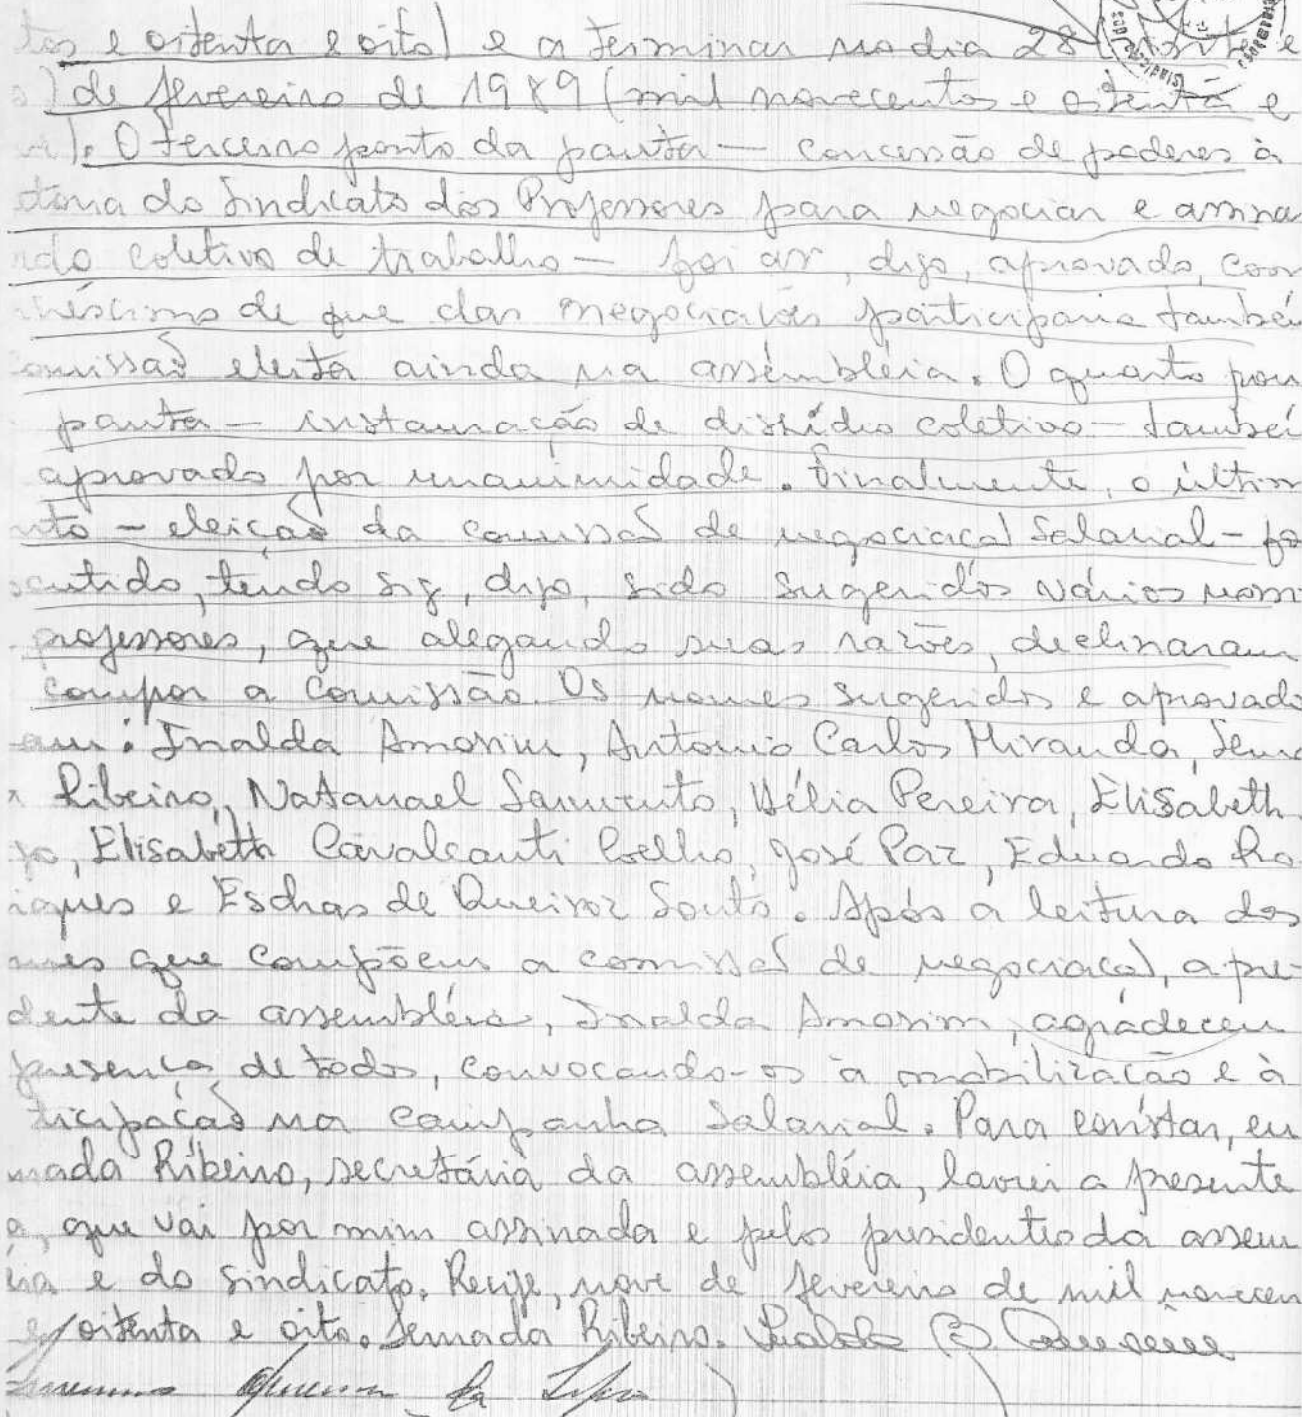 tos e oitenta e oito) e a terminar no dia 28 (vinte e
o) de fevereiro de 1989 (mil novecentos e oitenta e
ve). O terceiro ponto da pauta — concessão de poderes à
etoria do Sindicato dos Professores para negociar e assina
rdo coletivo de trabalho — foi ap, digo, aprovado, com
réscimo de que das negociações participaria també
omissão eleita ainda na assembléia. O quarto pon
pauta — instauração de dissídio coletivo — també
aprovado por unanimidade. Finalmente, o últim
nto — eleição da comissão de negociação salarial — fo
scutido, tendo sig, digo, sido sugeridos vários nom
professores, que alegando suas razões, declinaram
compor a Comissão. Os nomes sugeridos e aprovado
am: Inalda Amorim, Antonio Carlos Miranda, Sema
Ribeiro, Natanael Sarmento, Hélia Pereira, Elisabeth
Elisabeth Cavalcanti Coelho, José Paz, Eduardo Ro
iques e Eschas de Queiroz Souto. Após a leitura dos
mes que compõem a comissão de negociação, a pre-
dente da assembléia, Inalda Amorim, agradeceu
presença de todos, convocando-os à mobilização e à
ticipação na campanha salarial. Para constar, eu
mada Ribeiro, secretária da assembléia, lavrei a presente
a, que vai por mim assinada e pelos presidentes da assem
éia e do sindicato. Recife, nove de fevereiro de mil novecen
e oitenta e oito. Semada Ribeiro. Inalda
da